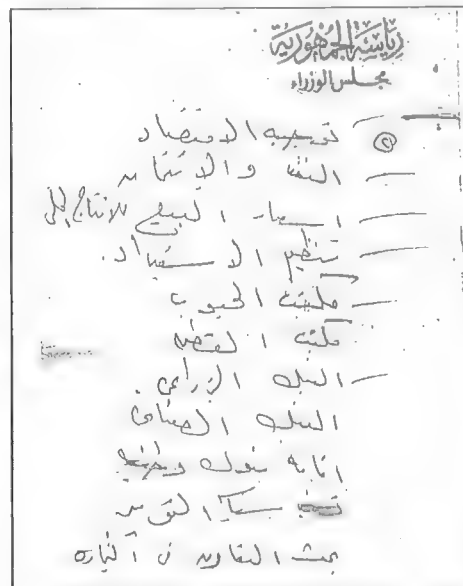 رياسة الجمهورية
مجلس الوزراء
(٢) توجيه الاقتصاد
— النقد والائتمان
— اسعار البيع للانتاج المحلى
— تنظيم الاستيراد.
— مكتب الحبوب
مكتب القطن
— البنك الزراعى.
البنك الصناعى
اقامة بنوك وطنية
التموين
بحث التعاون فى التجارة